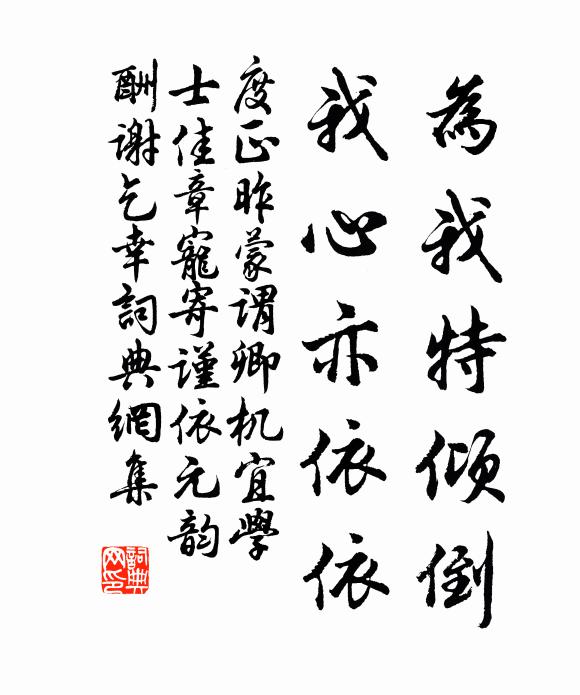 為我特傾倒
我心亦依依
度正昨蒙谓卿机宜學
士佳章寵寄谨依元韵
酬谢乞幸詞典網集
詞典网印